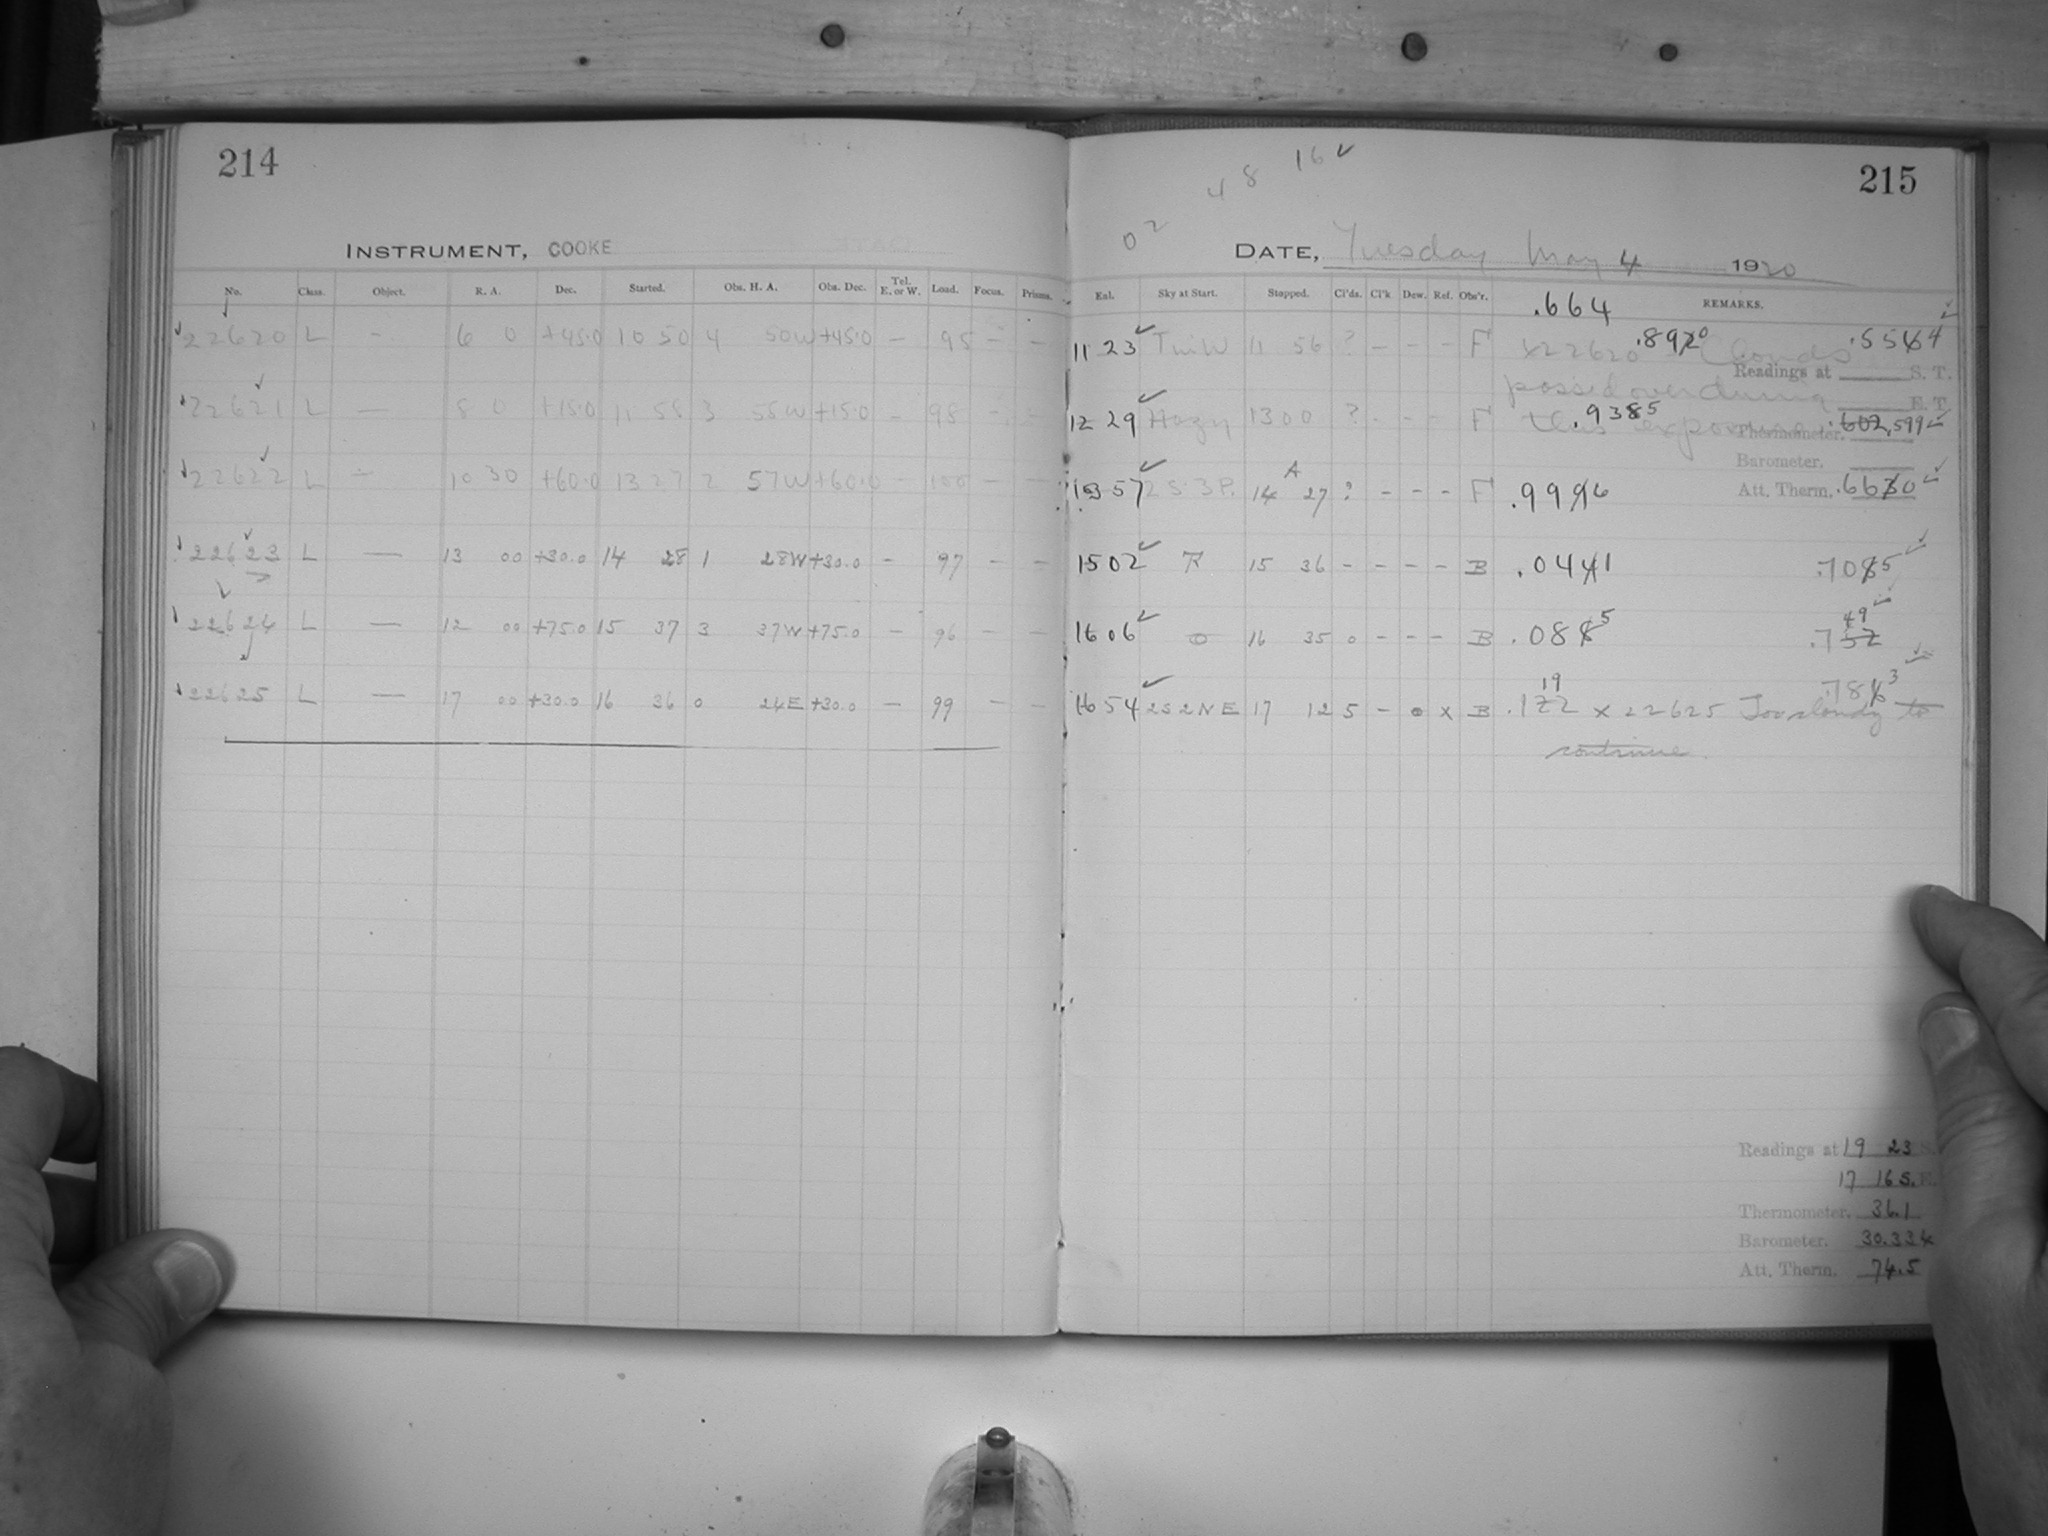 214
INSTRUMENT, COOKE
No. Class. Object. R. A. Dec. Started. Obs. H. A. Obs. Dec. Tel. E. or W. Load. Focus. Prisms.
22620 L - 6 0 +45.0 10 50 4 50W +45.0 - 95 - -
22621 L - 8 0 +15.0 11 58 3 58W +15.0 - 98 - -
22622 L - 10 30 +60.0 13 27 2 57W +60.0 - 100 - -
22623 L - 13 00 +30.0 14 28 1 28W +30.0 - 97 - -
22624 L - 12 00 +75.0 15 37 3 37W +75.0 - 96 - -
22625 L - 17 00 +30.0 16 36 0 24E +30.0 - 99 - -
02 4 8 16 ✓
215
DATE, Tuesday May 4 1920
Exl. Sky at Start. Stopped. Cl'ds. Cl'k Dew. Ref. Obs'r. .664 REMARKS.
11 23 ✓ 11 56 ? - - - F x22620 Clouds
Readings at S. T.
passed over during
E. T.
12 29 ✓ Hazy 13 00 ? - - - F .9385 this exposure .602 .599 ✓
Thermometer.
Barometer.
57 ✓ 2S.3P. 14 27 ? - - - F Att. Therm.
15 02 ✓ 15 36 - - - - B
16 06 ✓ 0 16 35 0 - - - B
16 54 ✓ 2S2NE 17 12 5 - 0 x B x 22625 Too cloudy to
continue
Readings at 19 23 S.
17 16 S. E.
Thermometer. 36.1
Barometer. 30.334
Att. Therm. 74.5